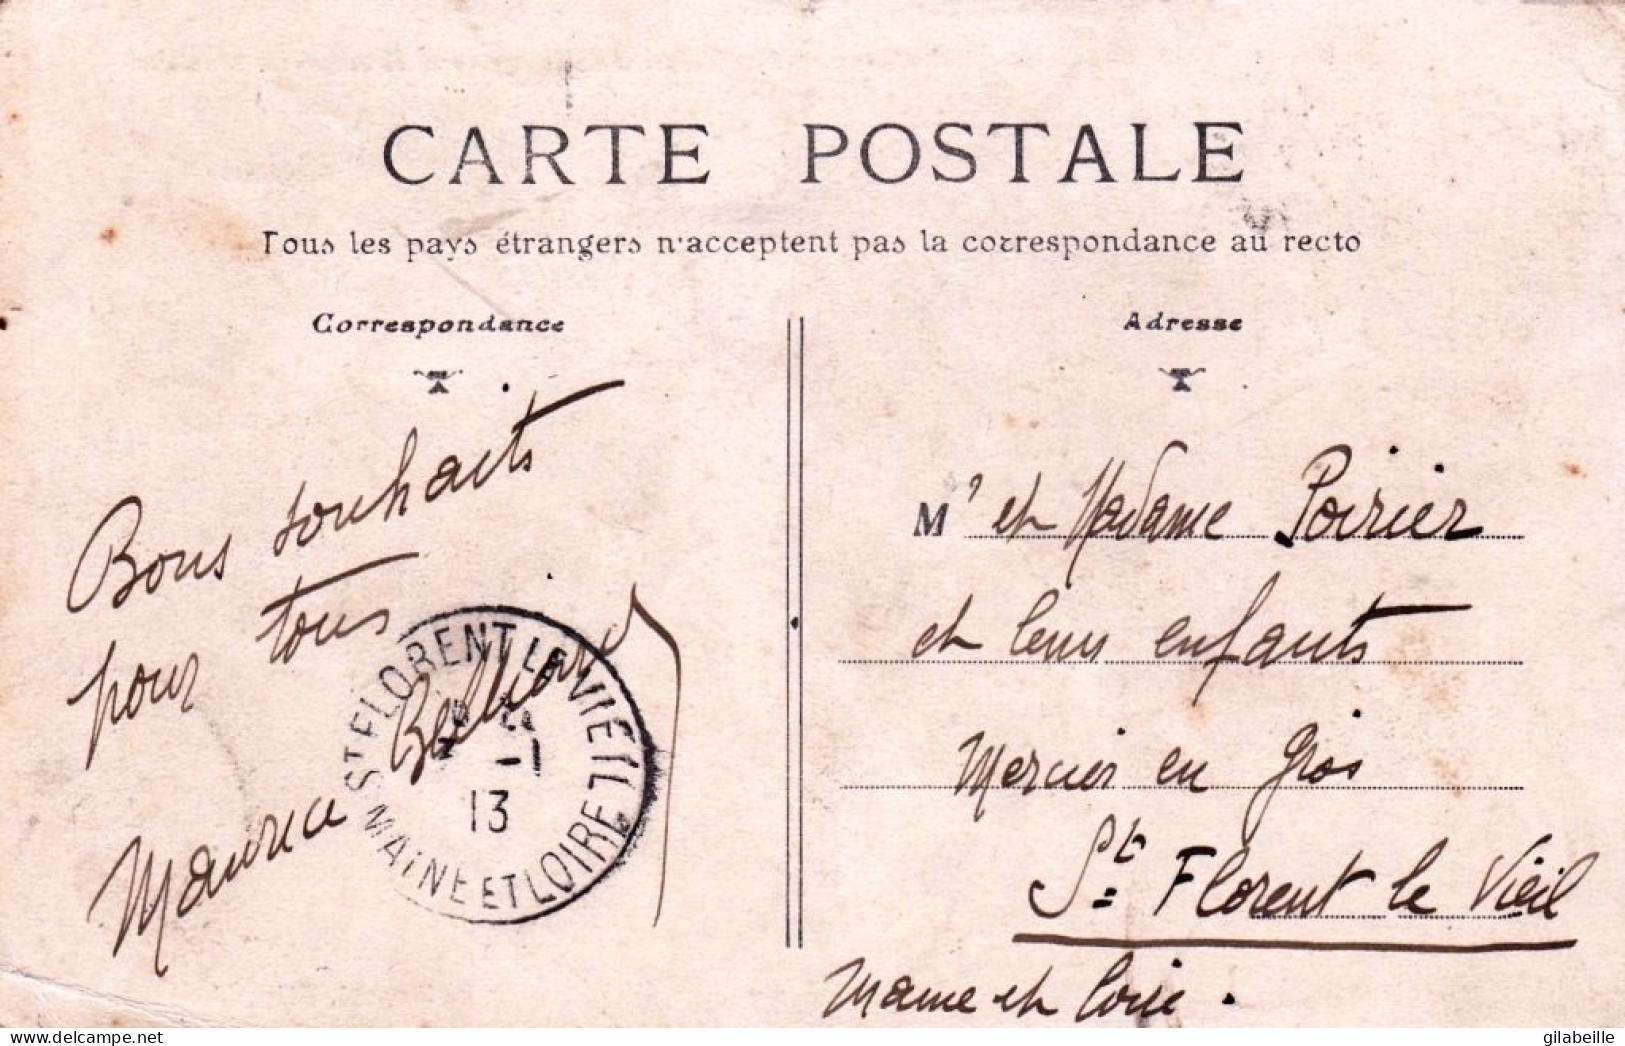 CARTE POSTALE
Tous les pays étrangers n'acceptent pas la correspondance au recto
Correspondance
Bons souhaits
pour tous
Maurice
ST FLORENT LE VIEIL
-1
13
MAINE ET LOIRE
Adresse
Mr et Madame Poirier
et leurs enfants
Mercier en gros
St Florent le Vieil
Maine et Loire.
gilabeille